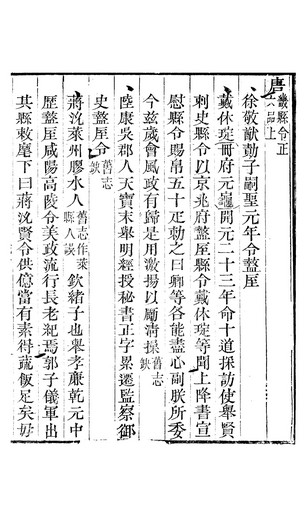 唐畿縣令正六品上
徐敬猷勣子嗣聖元年令盩厔
戴休琁冊府元龜開元二十三年命十道採訪使舉賢
刺史縣令以京兆府盩厔縣令戴休琁等聞上降書宣
慰縣令賜帛五十疋勅之曰卿等各能盡心副朕所委
今茲歲會風政有歸是用激揚以勵清操舊志缺
陸康吳郡人天寶末舉明經授秘書正字累遷監察御
史盩厔令舊志缺
蔣沇萊州膠水人舊志作乘縣人誤欽緒子也舉孝廉乾元中
歷盩厔咸陽高陵令美政流行長老紀焉郭子儀軍出
其縣敕麾下曰蔣沇賢令供億當有素得蔬飯足矣毋